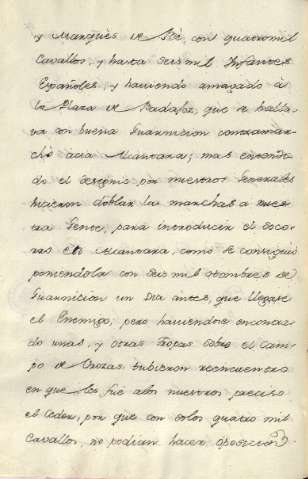 y Marques de Bee, cont quatro mil
Cavallos, y hasta seis mil Infantes
Españoles, y haviendo amagado à
la Plaza de Badajoz, que se halla
va con buena Guarnicion contramar
chó acia Alcantara; mas entendi
do el designio por nuestros Generales
hicieron doblar las marchas a nues
tra Gente, para introducir el socor
ro en Alcantara, como se consiguió
poniendola con seis mil hombres de
Guarnicion un dia antes, que llegase
el Enemigo; pero haviendose encontra
do unas, y otras tropas sobre el Cam
po de Brozas tubieron reencuentro
en que les fué alos nuestros preciso
el ceder, por que con solos quatro mil
Cavallos, no podian hacer oposicion